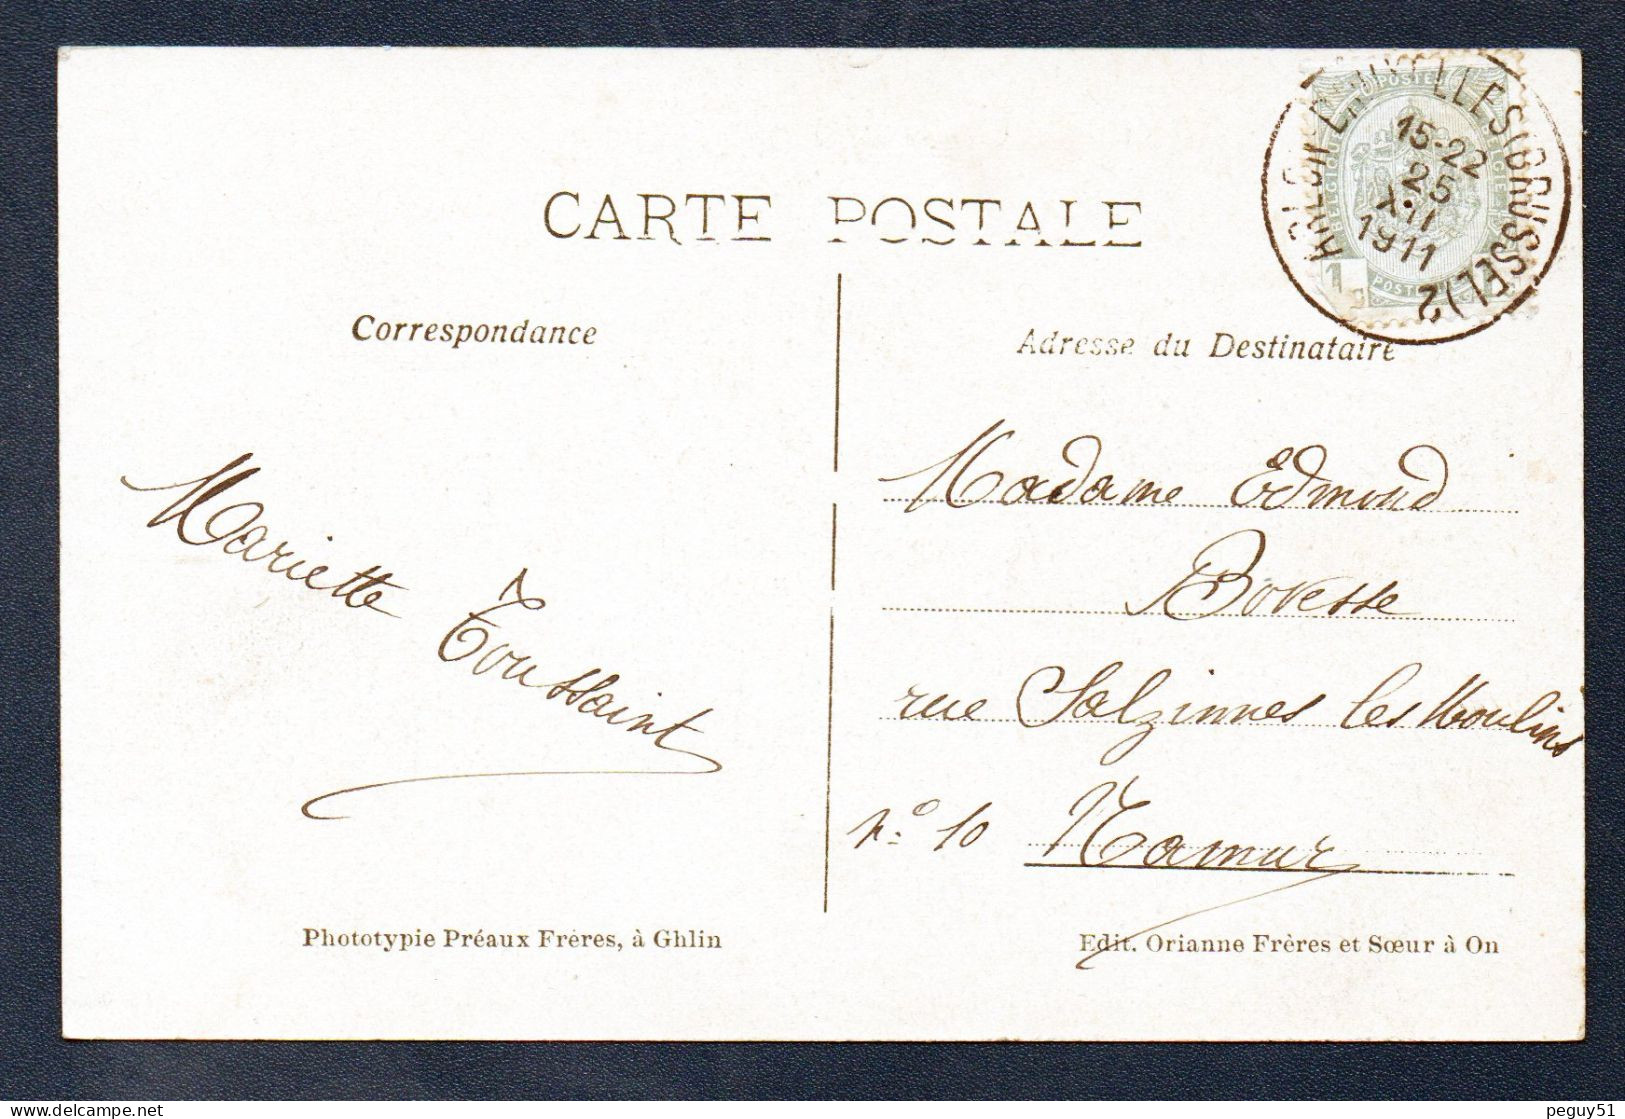 CARTE POSTALE
Correspondance
Mariette Toussaint
Phototypie Préaux Frères, à Ghlin
POSTES
BELGIQUE
BELGIE
1
15-22
25
XII
1911
(BRUSSEL) 2
Adresse du Destinataire
Madame Edmond
Bovesse
rue Salzinnes les Moulins
No 10 Namur
Edit. Orianne Frères et Sœur à On
peguy51